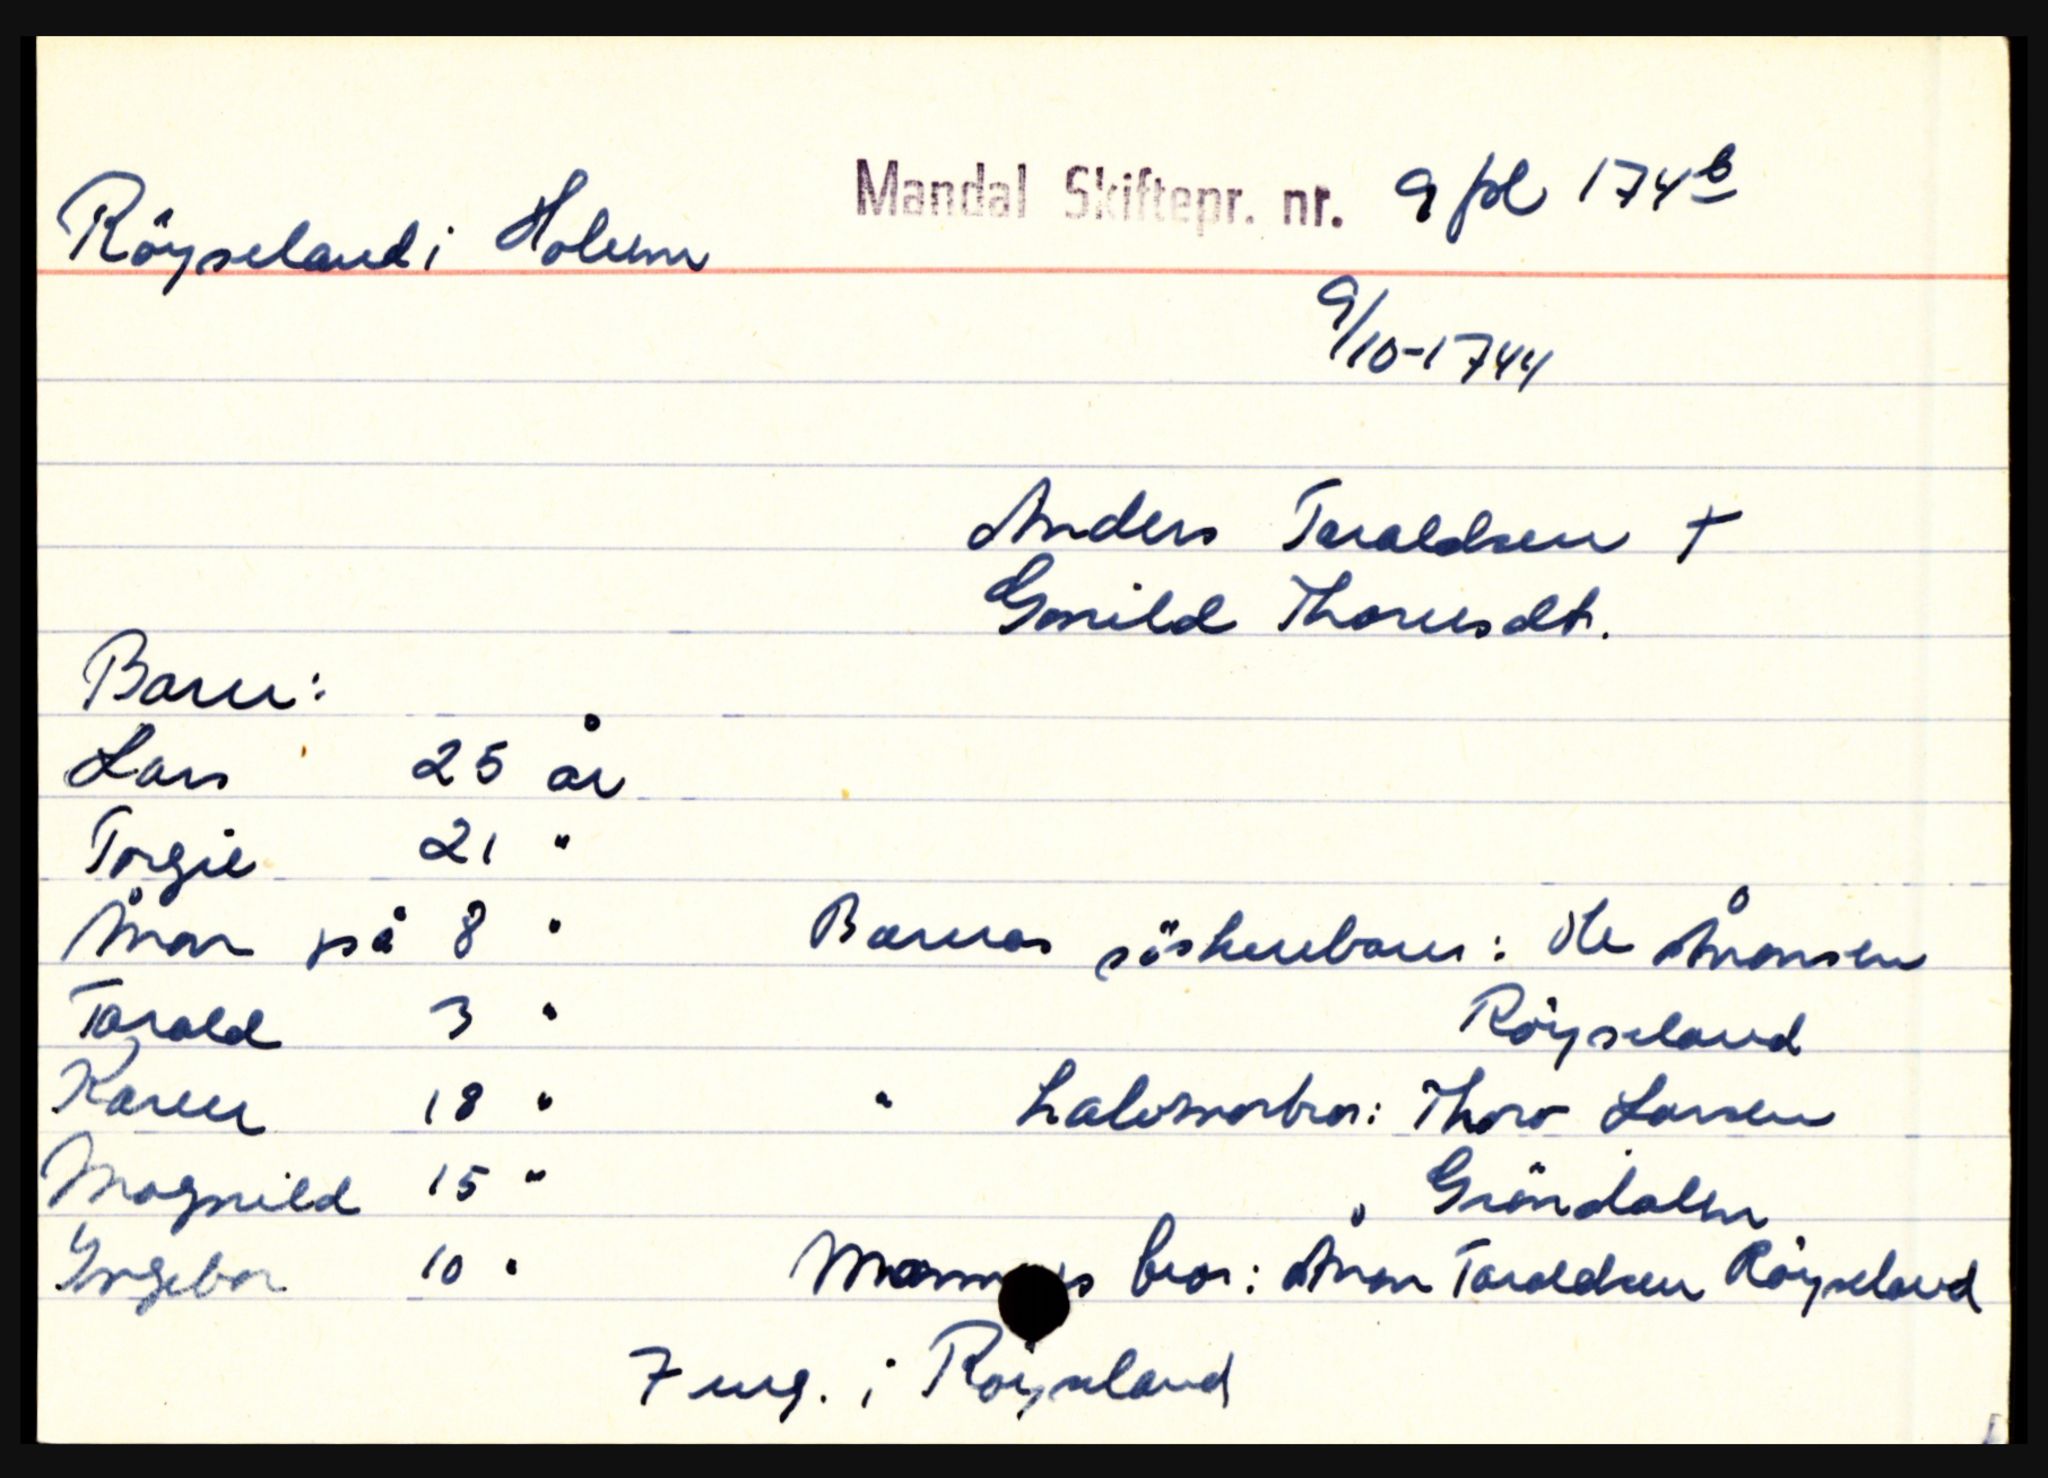 Mandal Skiftepr. nr. 9 fol 174b
Röyseland i Holum
9/10-1744
Anders Taraldsen †
Gunild Thoresdt.
Barn:
Lars 25 år
Torgie 21 "
Ånon på 8 " Barnas söskenbarn: Ole Ånonsen
Tarald 3 " Röyseland
Karen 18 " " halvmorbror: Thore Larsen
Magnild 15 " Gröndalen
Yngebor 10 " Mannens bror: Ånon Taraldsen Röyseland
7 eng. i Röyseland